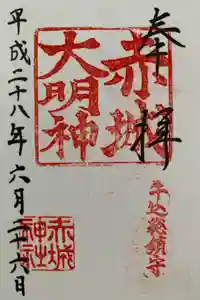 奉拝
赤城
大明神
牛込総鎮守
平成二十八年六月二十六日
赤城
神社